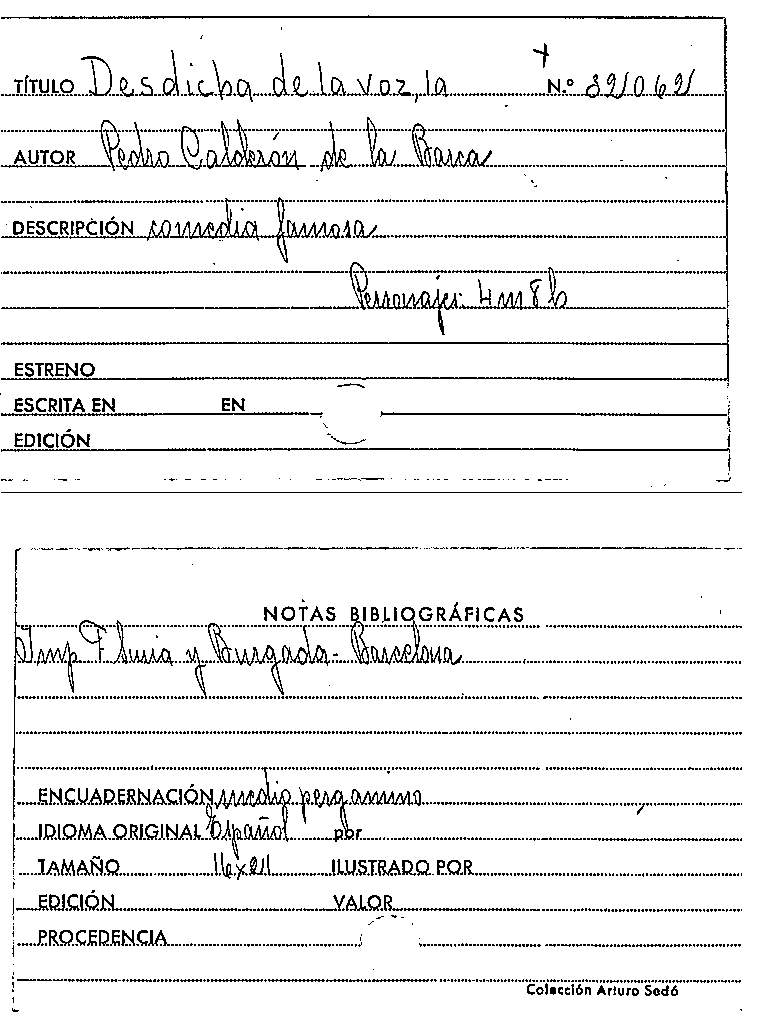 TÍTULO Desdicha de la voz, la N.º 82062
AUTOR Pedro Calderón de la Barca
DESCRIPCIÓN comedia famosa
Personajes: 4m 8h
ESTRENO
ESCRITA EN EN
EDICIÓN
NOTAS BIBLIOGRÁFICAS
Imp F Suria y Burgada - Barcelona
ENCUADERNACIÓN medio pergamino
IDIOMA ORIGINAL Español por
TAMAÑO 16x21 ILUSTRADO POR
EDICIÓN VALOR
PROCEDENCIA
Colección Arturo Sedó